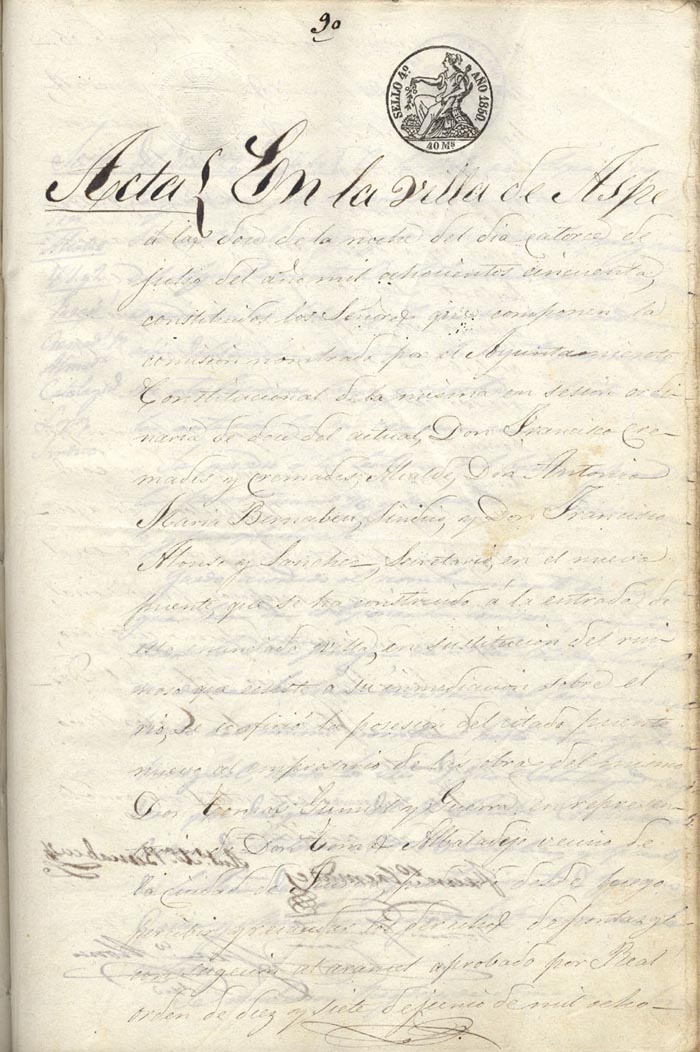 90
SELLO 4º AÑO 1850
40 Ms
Acta { En la villa de Aspe
á las doce de la noche del dia catorce de
julio del año mil ochocientos cincuenta,
constituidos los Señores que componen la
comision nombrada por el Ayuntamiento
Constitucional de la misma en sesion ordi-
naria de doce del actual, Don Francisco Cre-
mades y Cremades, Alcalde, Don Antonio
Maria Bernabeu, Sindico, y Don Francisco
Alonso y Sanchez, Secretario, en el nuevo
puente que se ha construido á la entrada de
esta villa, en sustitucion del rui-
noso que existe á su inmediacion sobre el
rio, se la posesion del citado puente
nuevo al empresario de las obras del mismo
Don y Guerra, en represen-
Don Albaladejo vecino de
la ciudad de desde luego
los derechos de pontazgo
con al arancel aprobado por Real
orden de diez y siete de junio de mil ocho-